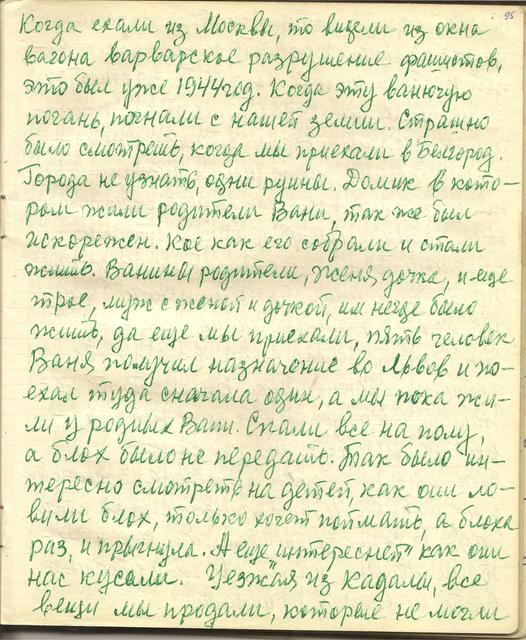 95
Когда ехали из Москвы, то видели из окна
вагона варварское разрушение фашистов,
это был уже 1944 год. Когда эту вонючую
погань, погнали с нашей земли. Страшно
было смотреть, когда мы приехали в Белгород.
Города не узнать, одни руины. Домик в кото-
ром жили родители Вани, так же был
искорежен. Кое как его собрали и стали
жить. Ванины родители, Женя дочка, и еще
трое, муж с женой и дочкой, им негде было
жить, да еще мы приехали, пять человек
Ваня получил назначение во Львов и по-
ехал туда сначала один, а мы пока жи-
ли у родных Вани. Спали все на полу,
а блох было не передать. Так было ин-
тересно смотреть на детей, как они ло-
вили блох, только хочет поймать, а блоха
раз, и прыгнула. А еще "интересней" как они
нас кусали. Уезжая из Кадалы, все
вещи мы продали, которые не могли